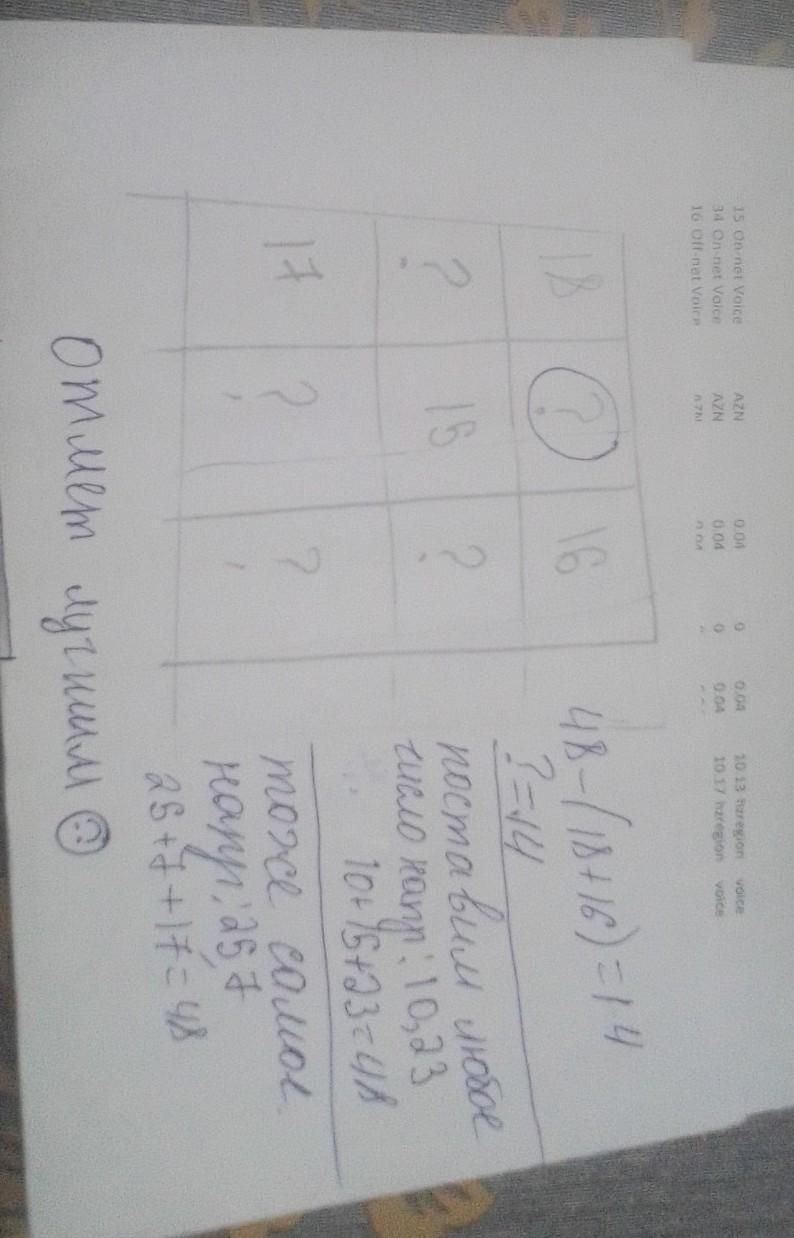 15 On-net Voice AZN 0.04 0 0.04 10.13 hzregion voice
34 On-net Voice AZN 0.04 0 0.04 10.17 hzregion voice
16 Off-net Voice
18 ? 16
48-(18+16)=14
?=14
? 15 ?
поставим любое
число напр: 10,23
10+15+23=48
17 ? ?
тоже самое
напр: 25,7
25+7+17=48
Отмет лучшим